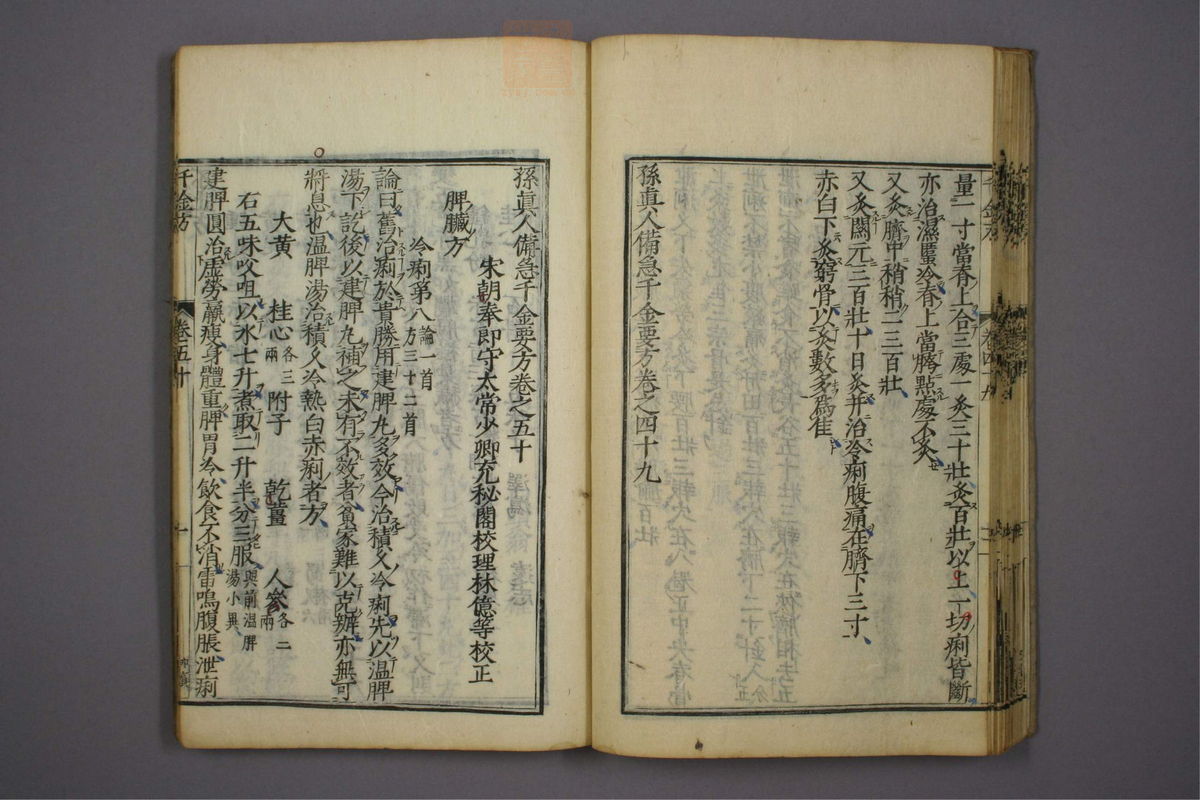 量一寸當脊上合三處一灸三十壯灸百壯以上一切痢皆斷
亦治濕䘌冷脊上當臍點處不灸
又灸臍中稍稍二三百壯
又灸關元三百壯十日灸并治冷痢腹痛在臍下三寸
赤白下灸窮骨以灸數多爲佳
孫真人備急千金要方卷之四十九
孫真人備急千金要方卷之五十
宋朝奉郎守太常少卿充秘閣校理林億等校正
脾臟方
冷痢第八論一首方三十二首
論曰舊治痢於貴勝用建脾丸多效今治積久冷痢先以温脾
湯下訖後以建脾丸補之未有不效者貧家難以克辨亦無可
將息也温脾湯治積久冷熱白赤痢者方
大黄 桂心各三兩 附子 乾薑 人參各二兩
右五味㕮咀以水七升煮取二升半分三服與前温脾湯小異
建脾圓治虛勞羸瘦身體重脾胃冷飲食不消雷鳴腹脹泄痢
千金方 卷五十 一